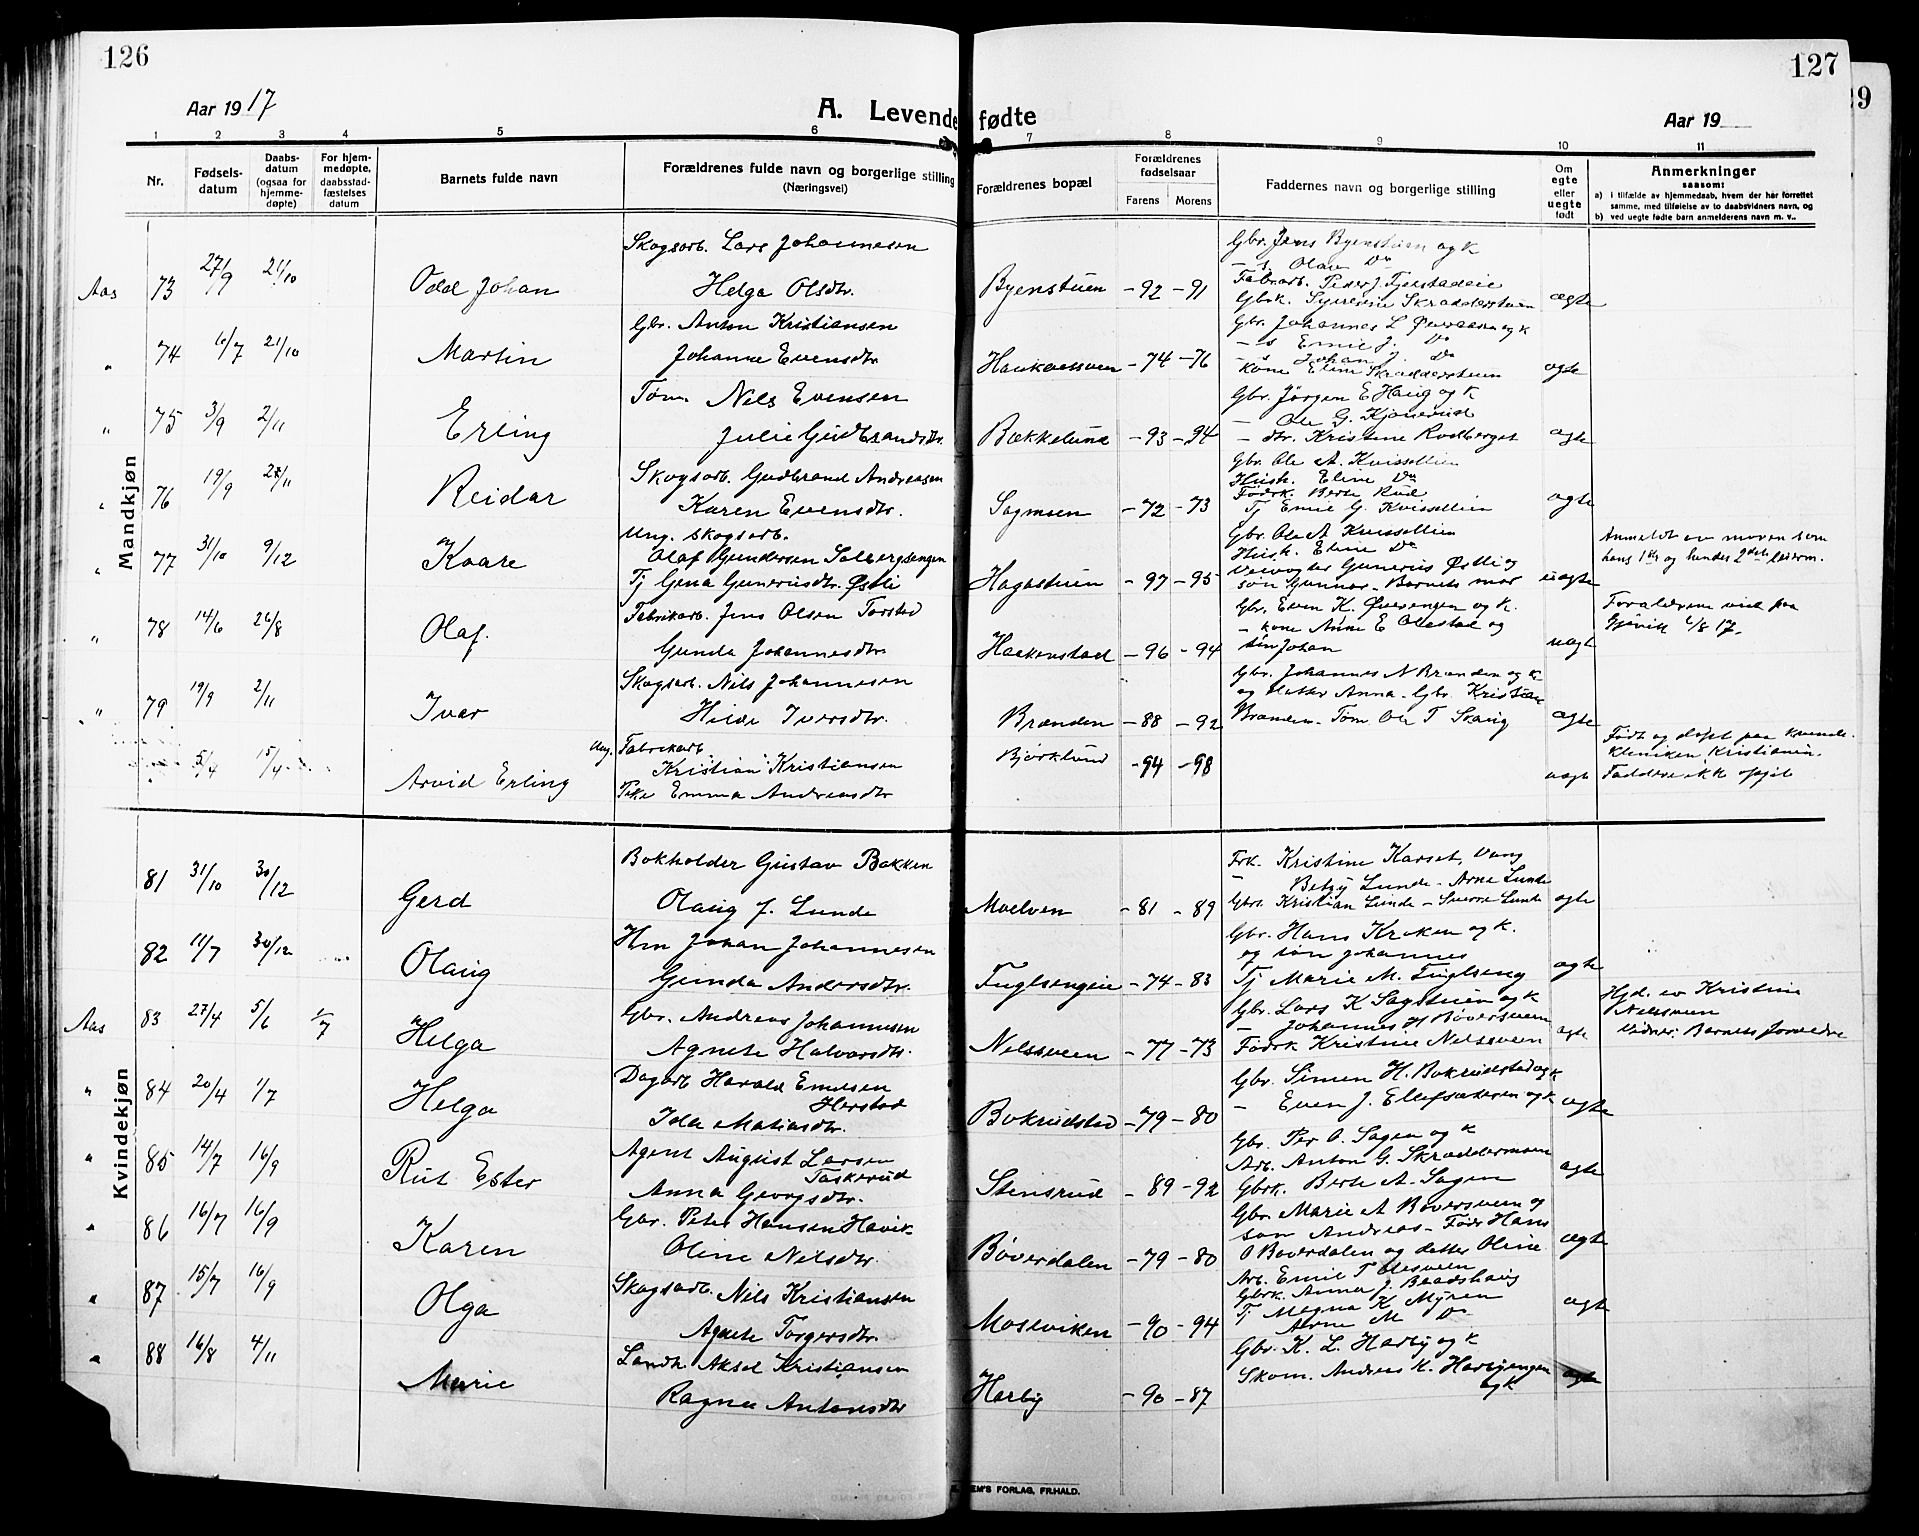 126
127
29
Aar 1917
A. Levende fødte
Aar 19
1 2 3 4 5 6 7 8 9 10 11
Nr.
Fødsels-
datum
Daabs-
datum
(ogsaa for
hjemme-
døpte)
For hjem-
medøpte,
daabsstad-
fæstelses
datum
Barnets fulde navn
Forældrenes fulde navn og borgerlige stilling
(Næringsvei)
Forældrenes bopæl
Forældrenes
fødselsaar
Farens Morens
Faddernes navn og borgerlige stilling
Om
egte
eller
uegte
født
Anmerkninger
saasom:
a) i tilfælde av hjemmedaab, hvem der har forrettet
samme, med tilføielse av to daabsvidners navn, og
b) ved uegte fødte barn anmelderens navn m. v..
Mandkjøn
Aas 73 27/9 21/10 Odd Johan
Skogsarb. Lars Johannesen
Helga Olsdtr.
Byenstuen -92 -91
Gbr. Jens Byenstuen og k
- s. Olav Do
Fabrarb. Peder J.
Gbrk. Skrædderstuen
ægte
" 74 6/7 21/10 Martin
Gbr. Anton Kristiansen
Johanne Evensdtr
-74 -76
Gbr. Johannes L og k
- s Emil J. Do
- s Johan J. Do
Kone Eline Skrædderstuen
ægte
" 75 3/9 2/11 Erling
Tøm. Nils Evensen
Julie Gudbrandsdtr.
Bækkelund -93 -94
Gbr. Jørgen E Haug og k
- Ole G. Kjønerud
- dtr. Kristine Rodberget
ægte
" 76 19/9 /11 Reidar
Skogsarb. Gudbrand Andreasen
Karen Evensdtr.
Sagmoen -72 -73
Gbr. Ole A. Kvissellien
Hust. Eline Do
Fødrk. Berte Rud
Tj Emil G. Kvissellien
ægte
" 77 31/10 9/12 Kaare
Ung. Skogsarb.
Olaf Gundersen Solbergsengen
Tj Gina Guneriusdtr. Østli
Hagastuen -97 -95
Gbr. Ole A Kvissellien
Hust. Eline Do
Veivogter Gunerius Østli og
søn Gunnar. Barnets mor
uægte
Anmeldt av moren som
hans 1ste og hendes 2det leierm.
" 78 14/6 26/8 Olaf.
Fabrikarb. Jens Olsen Torstad
Gunda Johannesdtr
Haakenstad -96 -94
Gbr. Even K. og k.
- kone Anne E Olestad og
søn Johan
uægte
Forældrene viet paa
Gjøvik /8 17.
" 79 19/9 2/11 Ivar
Skogsarb. Nils Johannesen
Hilda Iversdtr.
Brænden -88 -92
Gbr. Johannes N Brænden og k
og datter Anna. Gbr. Kristian
Brænden. Tøm. Ole T Skaug
ægte
5/4 15/4 Arvid Erling
Ung. Fabrikarb.
Kristian Kristiansen
Pike Emma Andreasdtr
Bjørklund -94 -98
uægte
Født og døpt paa Kvinde-
kliniken, Kristiania.
Faddere ikke opgit
Kvindekjøn
81 31/10 30/12 Gerd
Bokholder Gustav Bakken
Olaug J. Lunde
Moelven -81 -89
Frk. Kristine Karset, Vang
- Betzy Lunde - Arne Lunde
Gbr. Kristian Lunde - Sverre Lunde
ægte
82 11/7 30/12 Olaug
Hm Johan Johannesen
Gunda Andersdtr.
Fuglsengeie -74 -83
Gbr. Hans Kroken og k.
og søn Johannes
Tj Marie M. Fuglseng
ægte
Aas 83 27/4 5/6 1/7 Helga
Gbr. Andreas Johannesen
Agnete Halvorsdtr.
Nelssveen -77 -73
Gbr. Lars K Sagstuen og k
- Johannes H Bøversveen
Fødrk Kristine Nelssveen
ægte
Hjd. av Kristine
Nelssveen
Vidner: Barnets forældre
" 84 20/4 1/7 Helga
Dagarb Harald Emilsen
Herstad
Ida Matiasdtr.
Bokrudstad -79 -80
Gbr. Simen H. Bokrudstad og k
- Even J. Ellefsæteren og k
ægte
" 85 14/7 16/9 Rut Ester
Agent August Larsen
Taskerud
Anna Georgsdtr.
Stensrud -89 -92
Gbr. Per O. Sagen og k
Arb. Anton G. Skræddermoen
Gbrk. Berte A. Sagen
ægte
" 86 16/7 16/9 Karen
Gbr. Peter Hansen Høvik
Oline Nilsdtr.
Bøverdalen -79 -80
Gbr. Marie A Bøversveen og
søn Andreas - Fødr Hans
O Bøverdalen og datter Oline
ægte
" 87 15/7 16/9 Olga
Skogsarb. Nils Kristiansen
Agnete Torgersdtr.
Moseviken -90 -94
Arb. Emil T Olesveen
Gbrk. Anna J. Baadshaug
Tj Magna K Myren
Arne M Do
ægte
" 88 16/8 4/11 Marie
Landh. Aksel Kristiansen
Ragna Antonsdtr
Harby -90 -87
Gbr. K. L. Harby og k
Skom. Andreas K. Harbyengen
og k
ægte
EM'S FORLAG, FR.HALD.